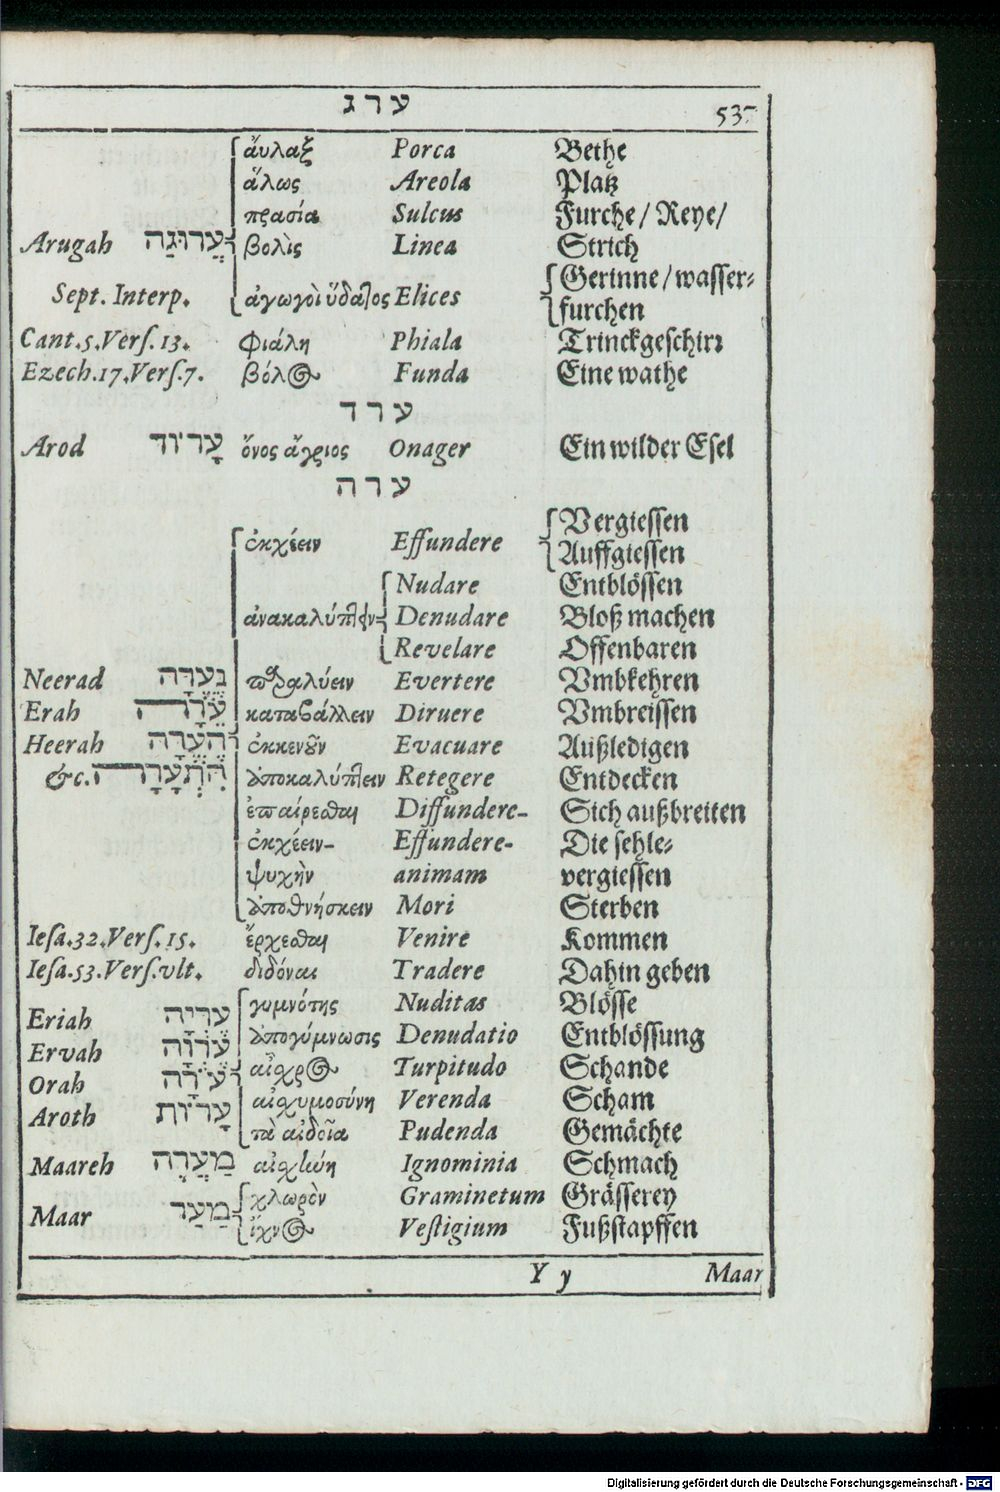 ערג 537
ἄυλαξ Porca Bethe
ἅλως Areola Platz
πρασία Sulcus Furche / Reye /
Arugah עֲרוּגַה βολὶς Linea Strich
Gerinne / wasser-
Sept. Interp. ἀγωγοὶ ὕδατος Elices furchen
Cant. 5. Verſ. 13. φιάλη Phiala Trinckgeſchirr
Ezech. 17. Verſ. 7. βόλος Funda Eine wathe
ערד
Arod עָרוֹד ὄνος ἄγριος Onager Ein wilder Eſel
ערה
Vergieſſen
ἐκχέειν Effundere Auffgieſſen
Nudare Entblöſſen
ἀνακαλύπτειν Denudare Bloß machen
Revelare Offenbaren
Neerad נֶעֱרָה παραλύειν Evertere Vmbkehren
Erah עֵרָה καταβάλλειν Diruere Vmbreiſſen
Heerah הֶעֱרָה ἐκκενοῦν Evacuare Außledigen
&c. הִתְעָרָה ἀποκαλύπτειν Retegere Entdecken
ἐπαίρεσθαι Diffundere- Sich außbreiten
ἐκχέειν- Effundere- Die ſehle-
ψυχὴν animam vergieſſen
ἀποθνήσκειν Mori Sterben
Ieſa. 32. Verſ. 15. ἔρχεσθαι Venire Kommen
Ieſa. 53. Verſ. vlt. διδόναι Tradere Dahin geben
γυμνότης Nuditas Blöſſe
Eriah עריה ἀπογύμνωσις Denudatio Entblöſſung
Ervah עֶרְוָה αἶχρος Turpitudo Schande
Orah ערה αἰχυμοσύνη Verenda Scham
Aroth עָרוֹת τὰ αἰδοῖα Pudenda Gemächte
Maareh מַעֲרֶה αἰχύνη Ignominia Schmach
χλωρὸν Graminetum Gräſſerey
Maar מַעַר ἴχνος Veſtigium Fußſtapffen
Y y Maar
Digitalisierung gefördert durch die Deutsche Forschungsgemeinschaft - DFG